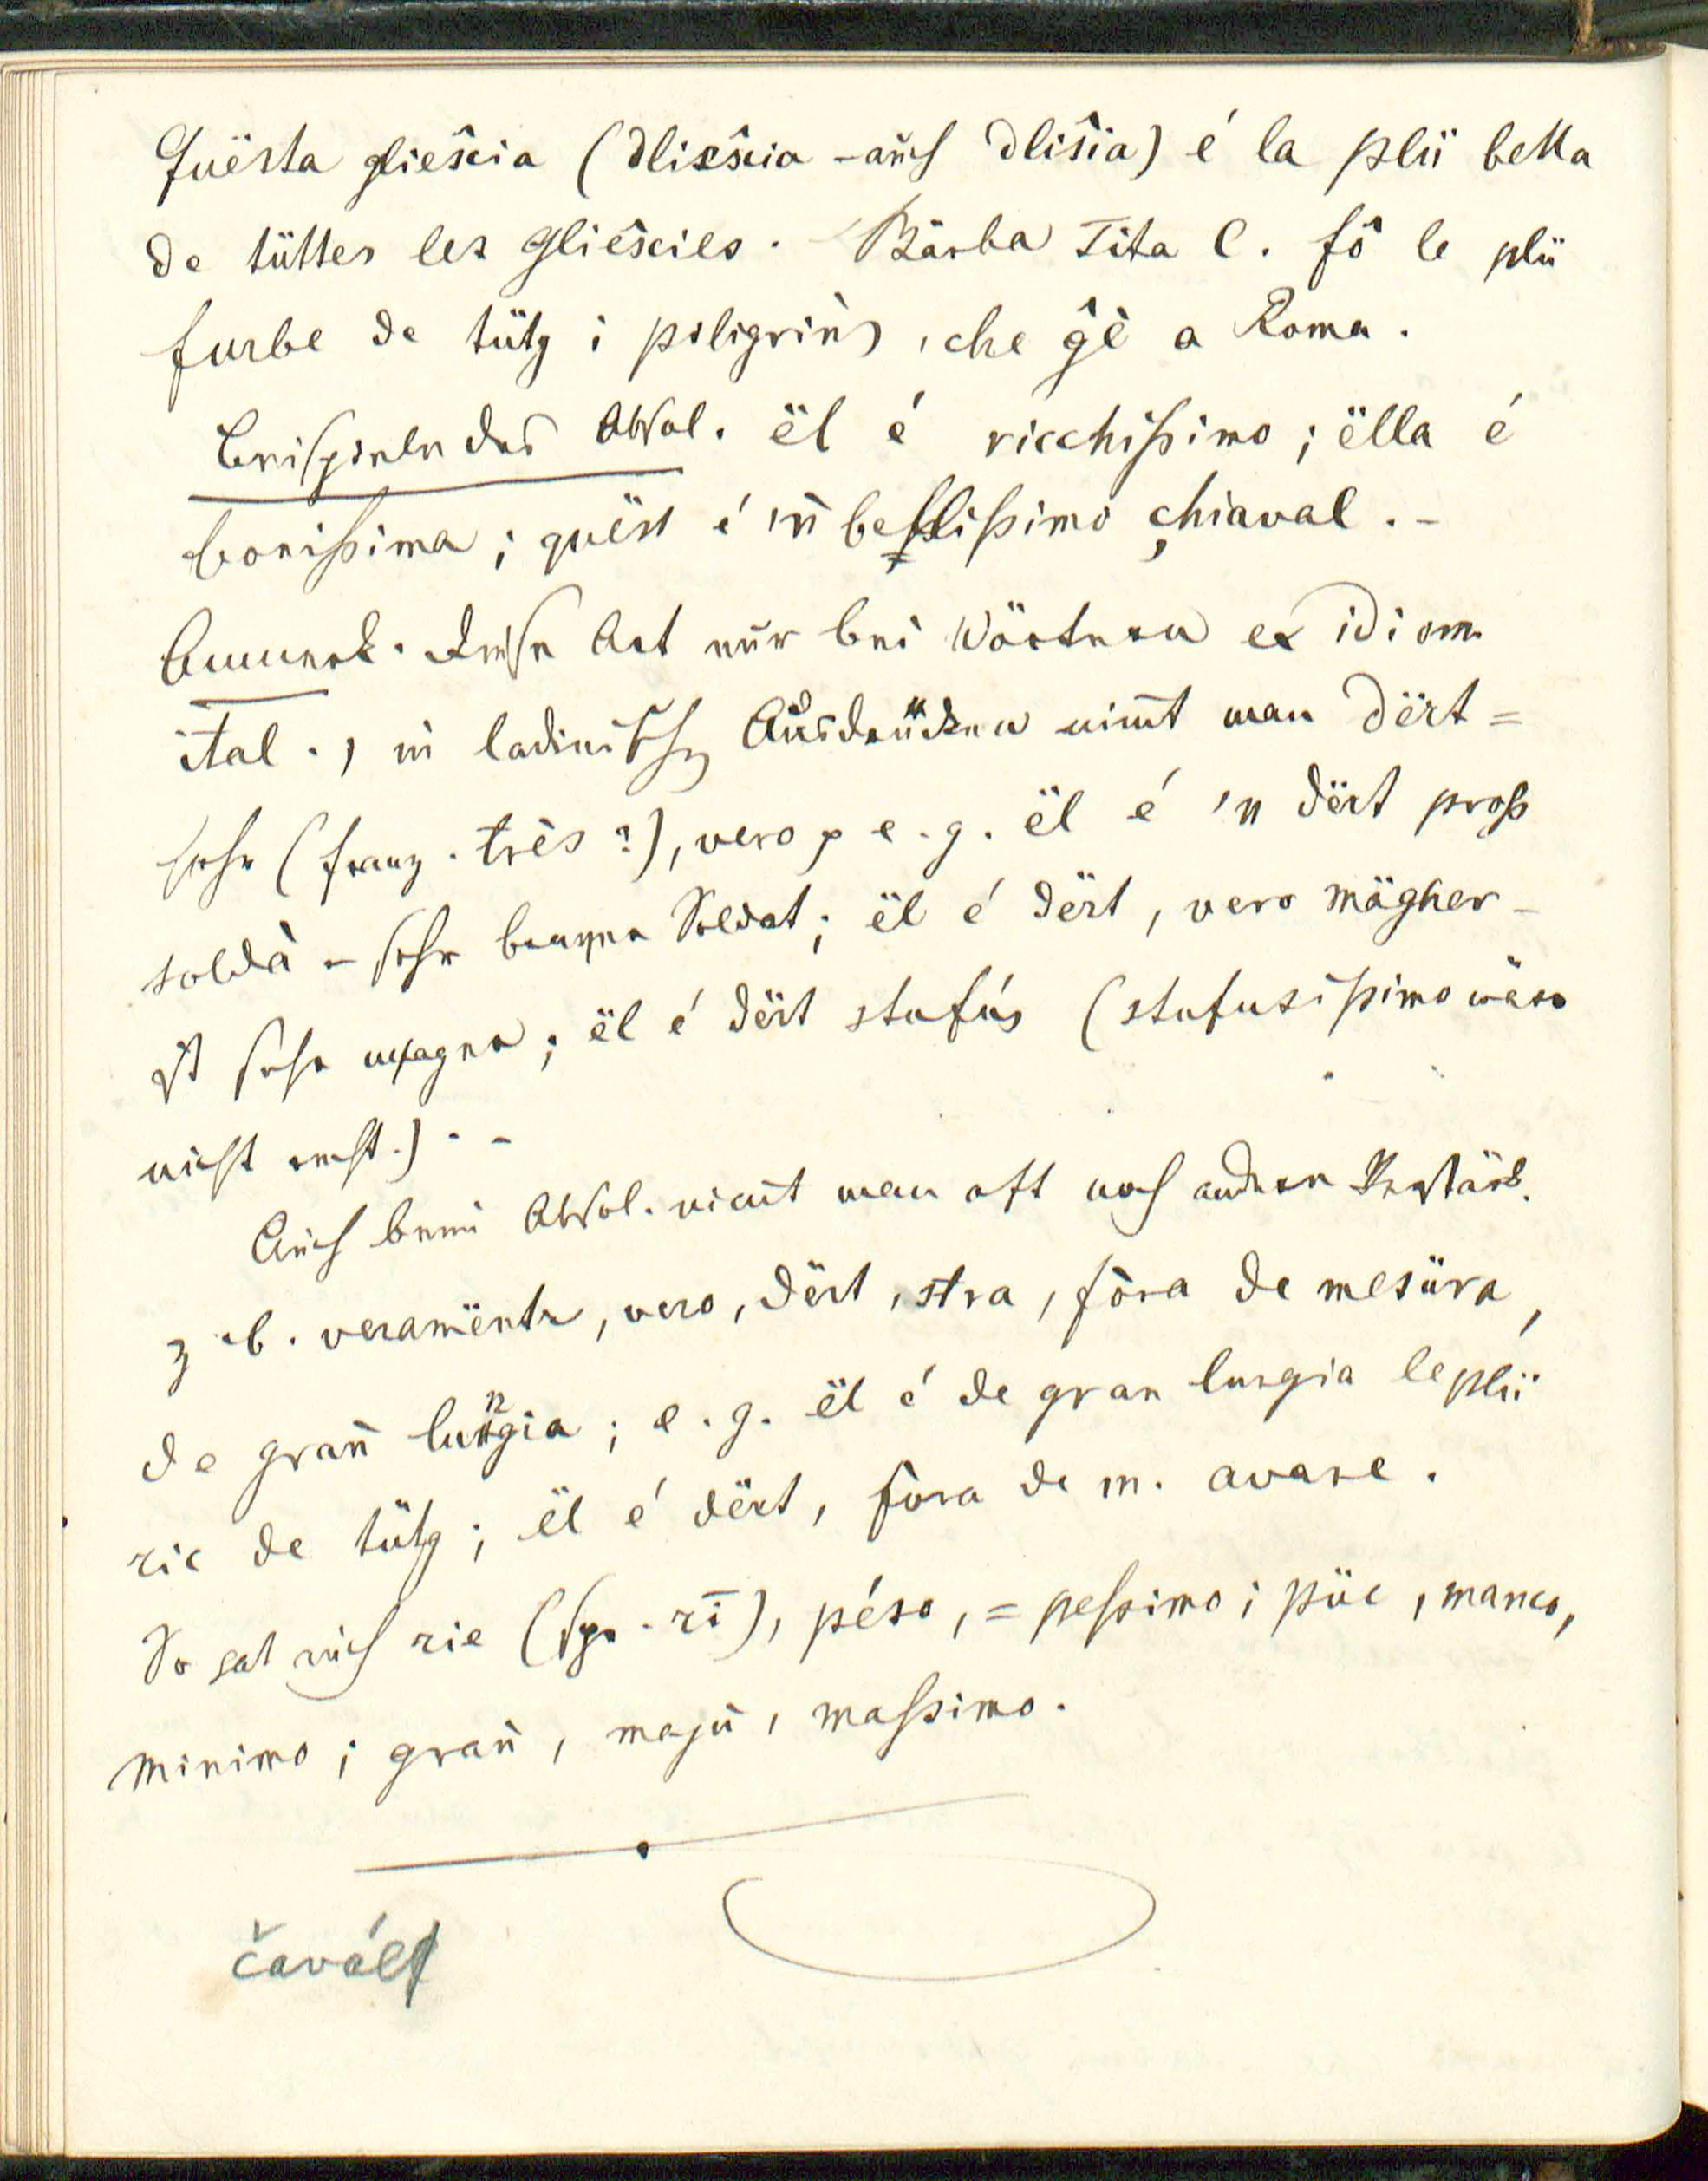 Quësta glies̑cia (dlies̑cia - auch dlis̑ia) é la plü bella
de tüttes les glies̑cies. Bärba Tita C. fô le plü
furbe de tütg i piligrins, che ĝê a Roma.
Beispiele des Absol. ël é ricchißimo; ëlla é
bonißima; quëst é 'ñ bellißimo chiaval. -
Anmerk. Diese Art nur bei Wörtern ex idiom.
ital., in ladinischen Ausdrücken nim̄t man dërt =
sehr (franz. très?), vero, e. g. ël é 'n dërt proß
soldà - sehr braver Soldat; ël é dërt, vero mägher -
ist sehr mager; ël é dërt stufús (stufusißimo wäre
nicht recht.). -
Auch beim Absol. nim̄t man oft noch andere Verstärk.
z. b. veramënte, vero, dërt, stra, föra de mesüra,
de grañ lungia; e. g. ël é de gran lungia le plü
ric de tütg; ël é dërt, föra de m. avare.
So hat auch rie (spr. rī), péso, = peßimo; püc, manco,
minimo; grañ, majù, maßimo.
čavál